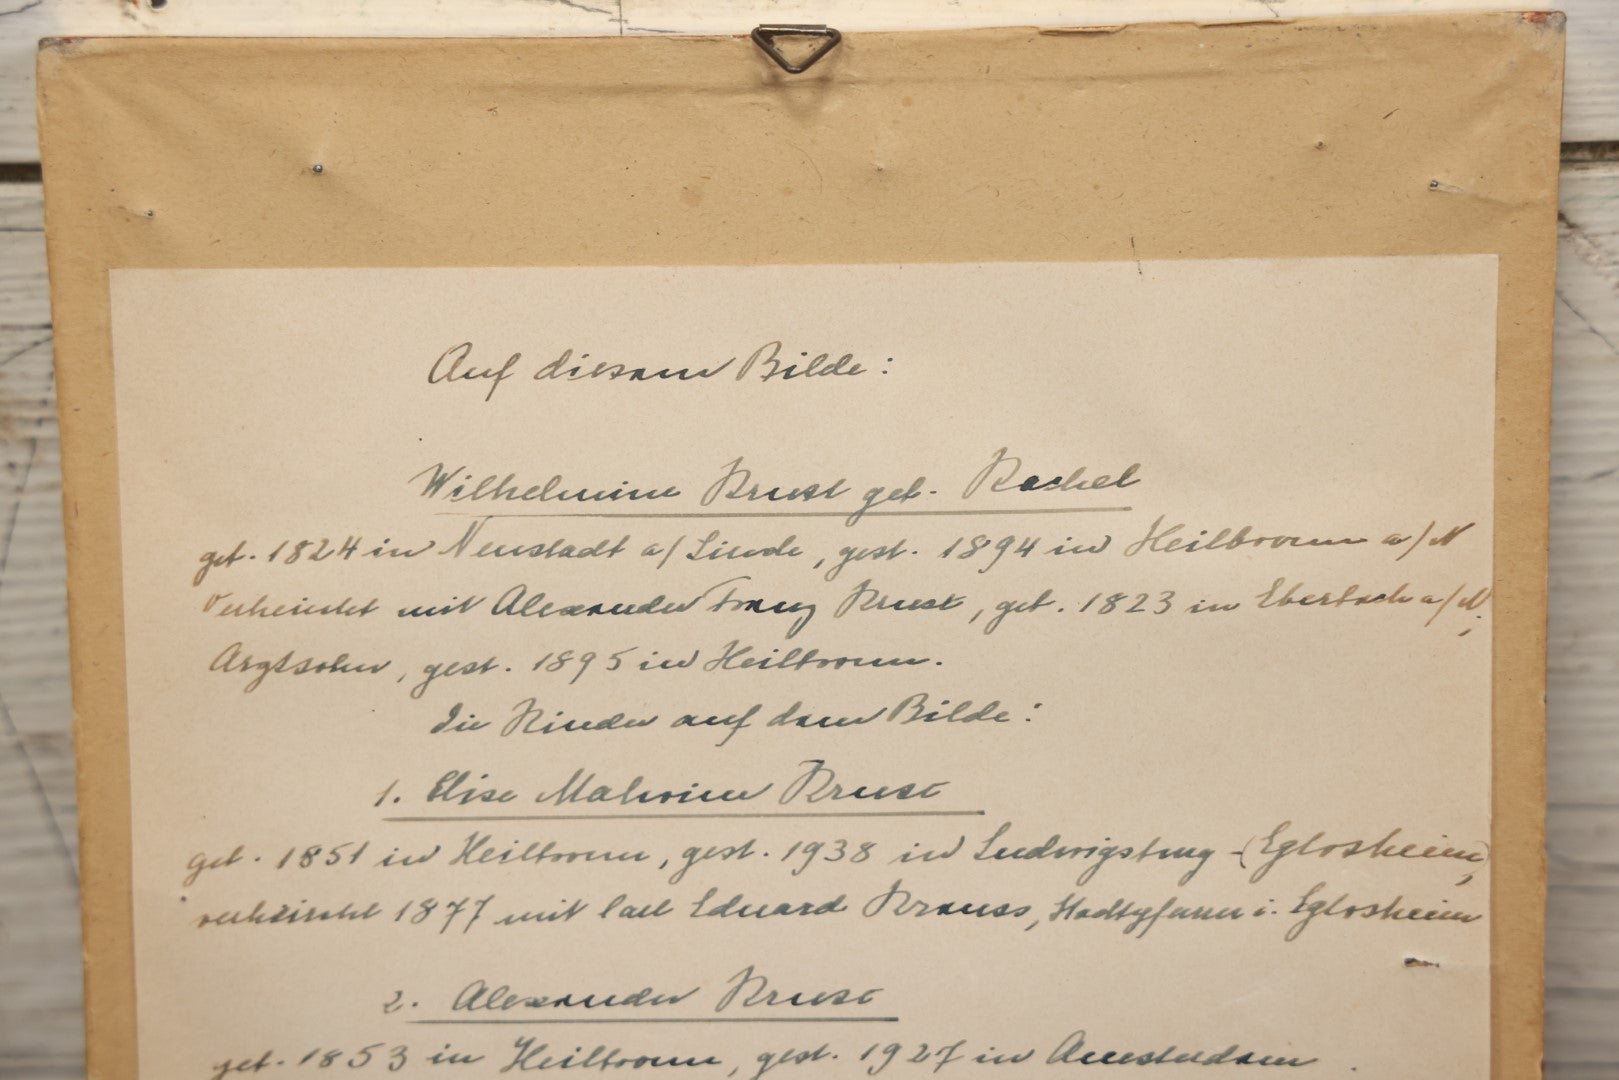 Auf diesem Bilde:
Wilhelmine Kruse geb. Raschel
geb. 1824 in Neustadt a/Linde, gest. 1894 in Heilbronn a/N
Verheiratet mit Alexander Franz Kruse, geb. 1823 in Eberbach a/N,
Arztsohn, gest. 1895 in Heilbronn.
Die Kinder auf dem Bilde:
1. Elise Malwine Kruse
geb. 1851 in Heilbronn, gest. 1938 in Ludwigsburg-(Eglosheim),
verheiratet 1877 mit Carl Eduard Krauss, Stadtpfarrer i. Eglosheim
2. Alexander Kruse
geb. 1853 in Heilbronn, gest. 1927 in Amsterdam.